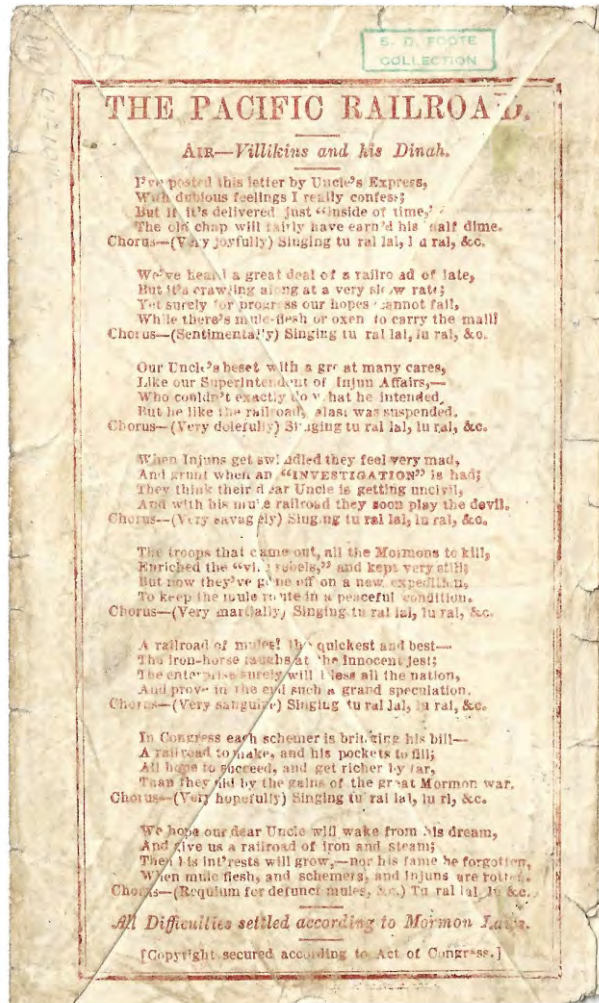 S. D. FOOTE
COLLECTION
THE PACIFIC RAILROAD.
AIR—Villikins and his Dinah.
I've posted this letter by Uncle's Express,
With dubious feelings I really confess;
But if it's delivered just "inside of time,"
The old chap will fairly have earn'd his half dime.
Chorus—(Very joyfully) Singing tu ral lal, lu ral, &c.
We've heard a great deal of a railroad of late,
But it's crawling along at a very slow rate;
Yet surely for progress our hopes cannot fail,
While there's mule-flesh or oxen to carry the mail!
Chorus—(Sentimentally) Singing tu ral lal, lu ral, &c.
Our Uncle's beset with a great many cares,
Like our Superintendent of Injun Affairs,—
Who couldn't exactly do what he intended,
But he like the railroad, alas! was suspended.
Chorus—(Very dolefully) Singing tu ral lal, lu ral, &c.
When Injuns get swindled they feel very mad,
And grunt when an "INVESTIGATION" is had;
They think their dear Uncle is getting uncivil,
And with his mule railroad they soon play the devil.
Chorus—(Very savagely) Singing tu ral lal, lu ral, &c.
The troops that came out, all the Mormons to kill,
Enriched the "vile rebels," and kept very still;
But now they've gone off on a new expedition,
To keep the mule route in a peaceful condition.
Chorus—(Very martially) Singing tu ral lal, lu ral, &c.
A railroad of mules! the quickest and best—
The iron-horse laughs at the innocent jest;
The enterprise surely will bless all the nation,
And prove in the end such a grand speculation.
Chorus—(Very sanguine) Singing tu ral lal, lu ral, &c.
In Congress each schemer is bringing his bill—
A railroad to make, and his pockets to fill;
All hope to succeed, and get richer by far,
Than they did by the gains of the great Mormon war.
Chorus—(Very hopefully) Singing tu ral lal, lu rl, &c.
We hope our dear Uncle will wake from his dream,
And give us a railroad of iron and steam;
Then his int'rests will grow,—nor his fame be forgotten,
When mule flesh, and schemers, and Injuns are rotten.
Chorus—(Requium for defunct mules, &c.) Tu ral lal, lu &c.
All Difficulties settled according to Mormon Laws.
[Copyright secured according to Act of Congress.]